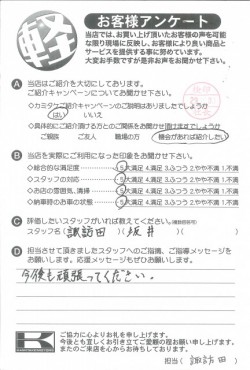 軽
お客様アンケート
当店では、お買い上げ頂いたお客様の声を可能
な限り現場に反映し、お客様により良い商品と
サービスを提供する事に努めています。
大変お手数ですが是非お声をお聞かせ下さい。
A 当店はご紹介を大切にしております。
ご紹介キャンペーンについてお聞かせ下さい。
◇カミタケご紹介キャンペーンのご説明はありましたでしょうか
はい いいえ
◇具体的にご紹介頂ける方とのご関係をお聞かせ頂けますでしょうか
ご親族 ご友人 職場の方 機会があれば紹介したい
B 当店を実際にご利用になった印象をお聞かせ下さい。
◇総合的な満足度 5.大満足 4.満足 3.ふつう 2.やや不満 1.不満
◇スタッフの対応 5.大満足 4.満足 3.ふつう 2.やや不満 1.不満
◇お店の雰囲気、清掃 5.大満足 4.満足 3.ふつう 2.やや不満 1.不満
◇納車時のお車の状態 5.大満足 4.満足 3.ふつう 2.やや不満 1.不満
C 評価したいスタッフがいれば教えてください。(複数回答可)
スタッフ名( 諏訪田 / 坂井 )
D 担当させて頂きましたスタッフへのご指摘、ご応援メッセージを
お願いします。応援メッセージもぜひお願いします。
今後も頑張ってください。
K
ご協力に心よりお礼を申し上げます。
今後とも宜しくお引き立てご愛顧の程お願い申し上げます。
またのご来店を心からお待ちしております。
担当( 諏訪田 )